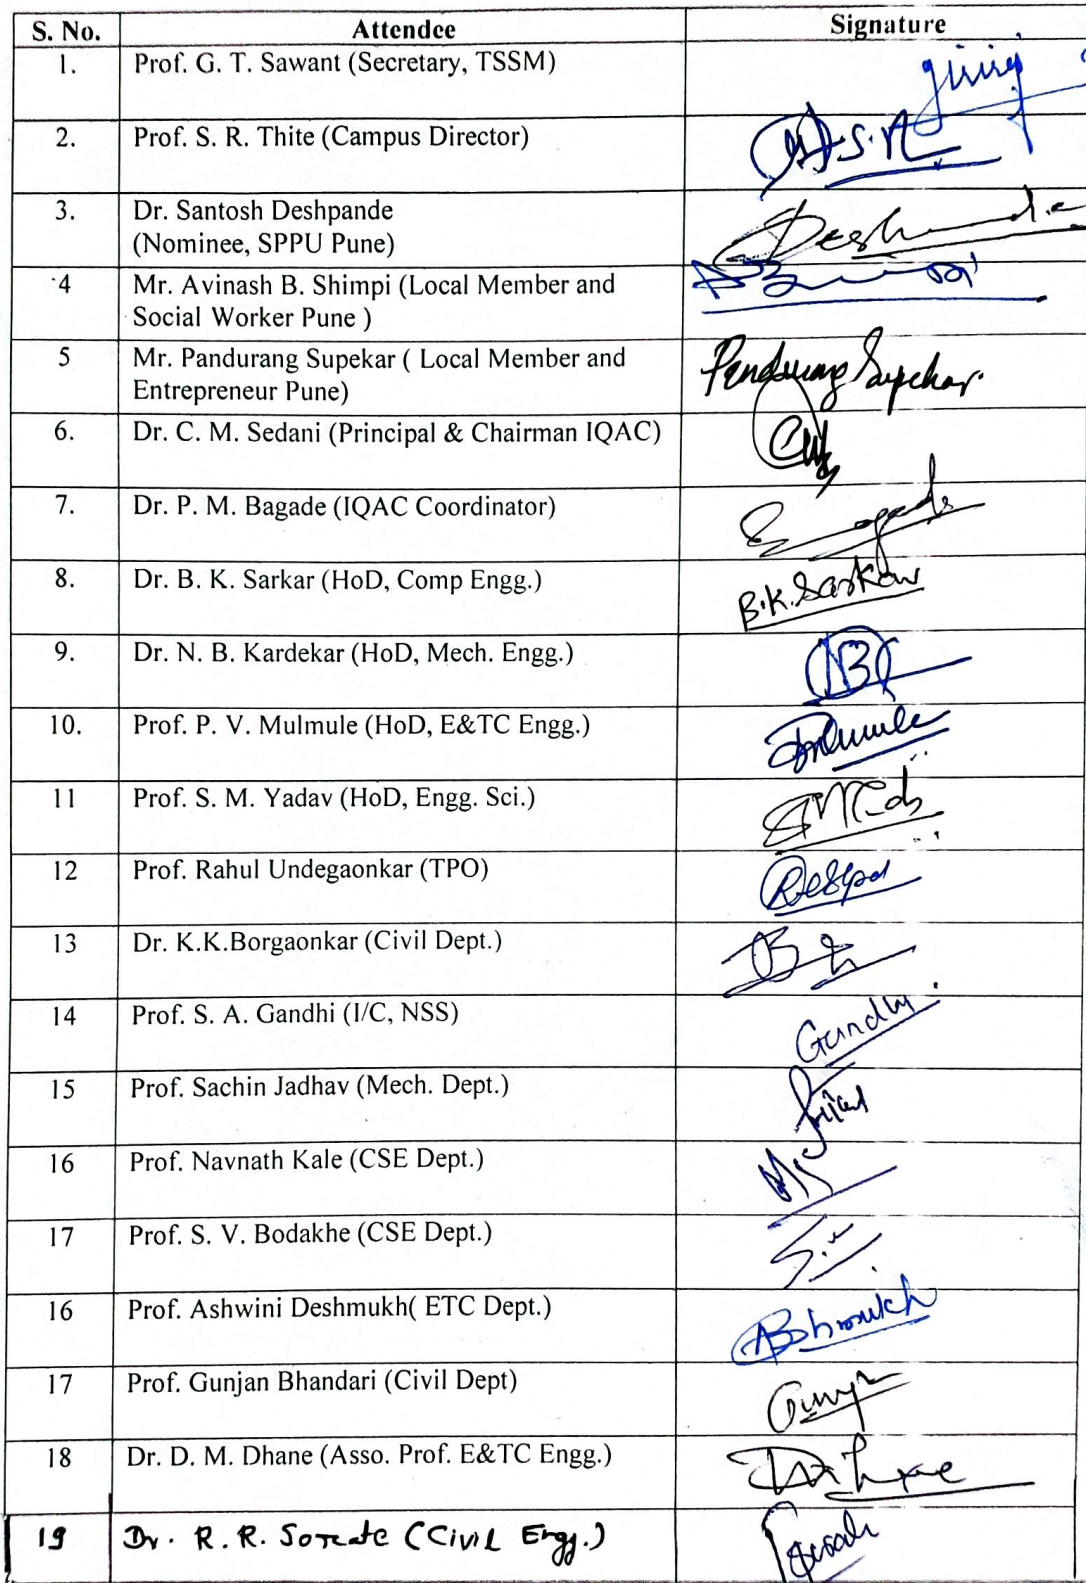 S. No. Attendee Signature
1. Prof. G. T. Sawant (Secretary, TSSM)
2. Prof. S. R. Thite (Campus Director) S.R
3. Dr. Santosh Deshpande
(Nominee, SPPU Pune) Deshpande
4 Mr. Avinash B. Shimpi (Local Member and
Social Worker Pune )
5 Mr. Pandurang Supekar ( Local Member and Pandurang Supekar.
Entrepreneur Pune)
6. Dr. C. M. Sedani (Principal & Chairman IQAC)
7. Dr. P. M. Bagade (IQAC Coordinator)
8. Dr. B. K. Sarkar (HoD, Comp Engg.) B.K.Sarkar
9. Dr. N. B. Kardekar (HoD, Mech. Engg.)
10. Prof. P. V. Mulmule (HoD, E&TC Engg.)
11 Prof. S. M. Yadav (HoD, Engg. Sci.)
12 Prof. Rahul Undegaonkar (TPO)
13 Dr. K.K.Borgaonkar (Civil Dept.)
14 Prof. S. A. Gandhi (I/C, NSS) Gandhi
15 Prof. Sachin Jadhav (Mech. Dept.)
16 Prof. Navnath Kale (CSE Dept.)
17 Prof. S. V. Bodakhe (CSE Dept.)
16 Prof. Ashwini Deshmukh( ETC Dept.)
17 Prof. Gunjan Bhandari (Civil Dept)
18 Dr. D. M. Dhane (Asso. Prof. E&TC Engg.)
19 Dr. R. R. Sorate (Civil Engg.)